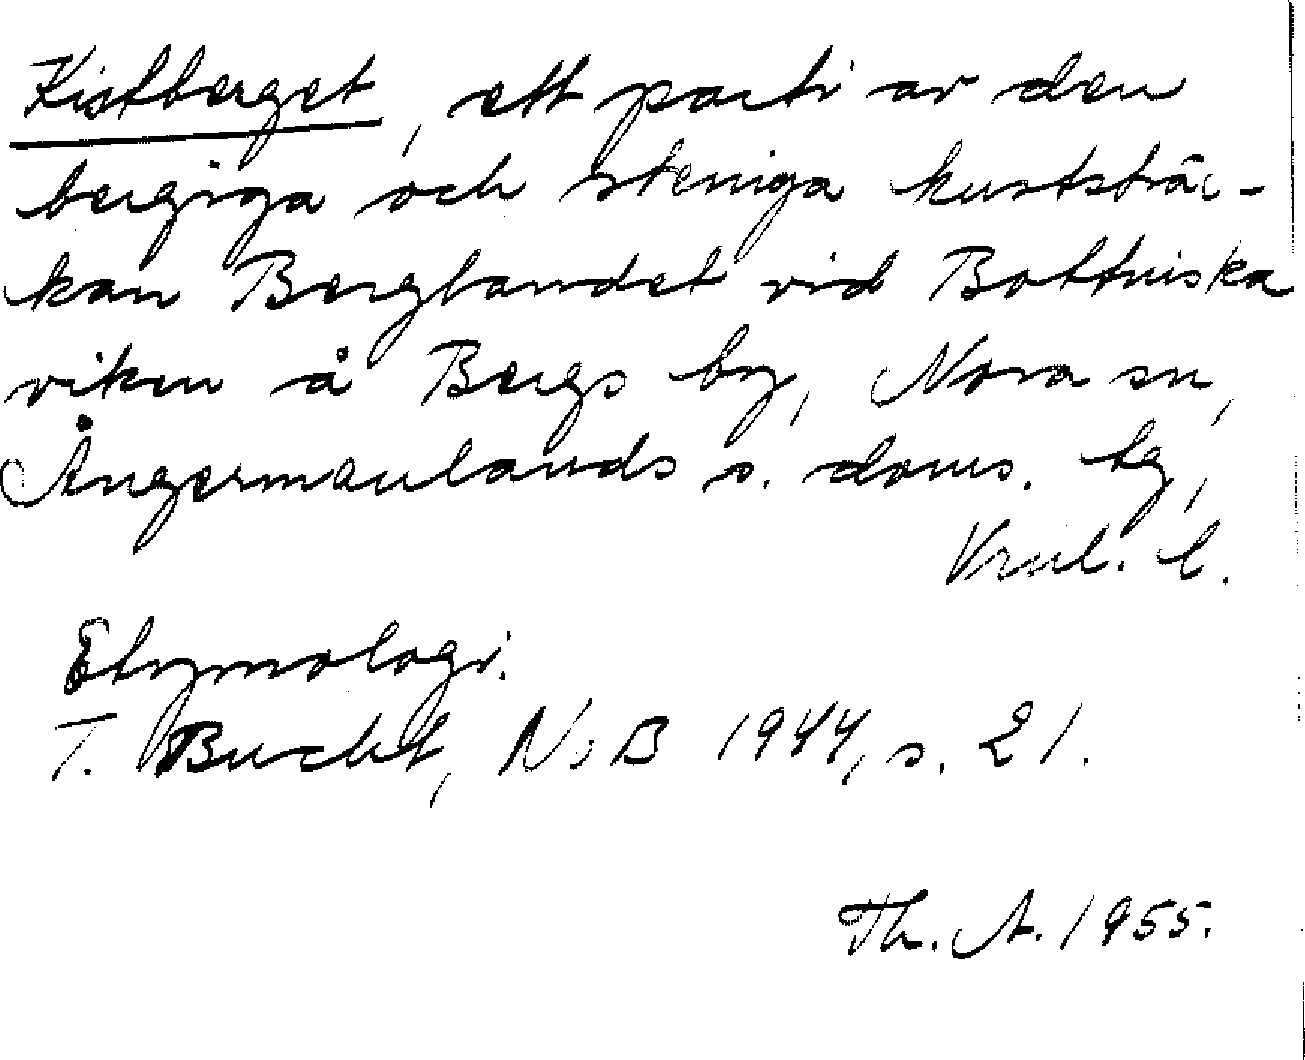 Kistberget, ett parti av den
bergiga och steniga kuststräc-
kan Berglandet vid Bottniska
viken å Bergs by, Nora sn,
Ångermanlands s. doms. tg,
Vrnl. l.
Etymologi.
T. Bucht, NoB 1944, s. 21.
Th. A. 1955.